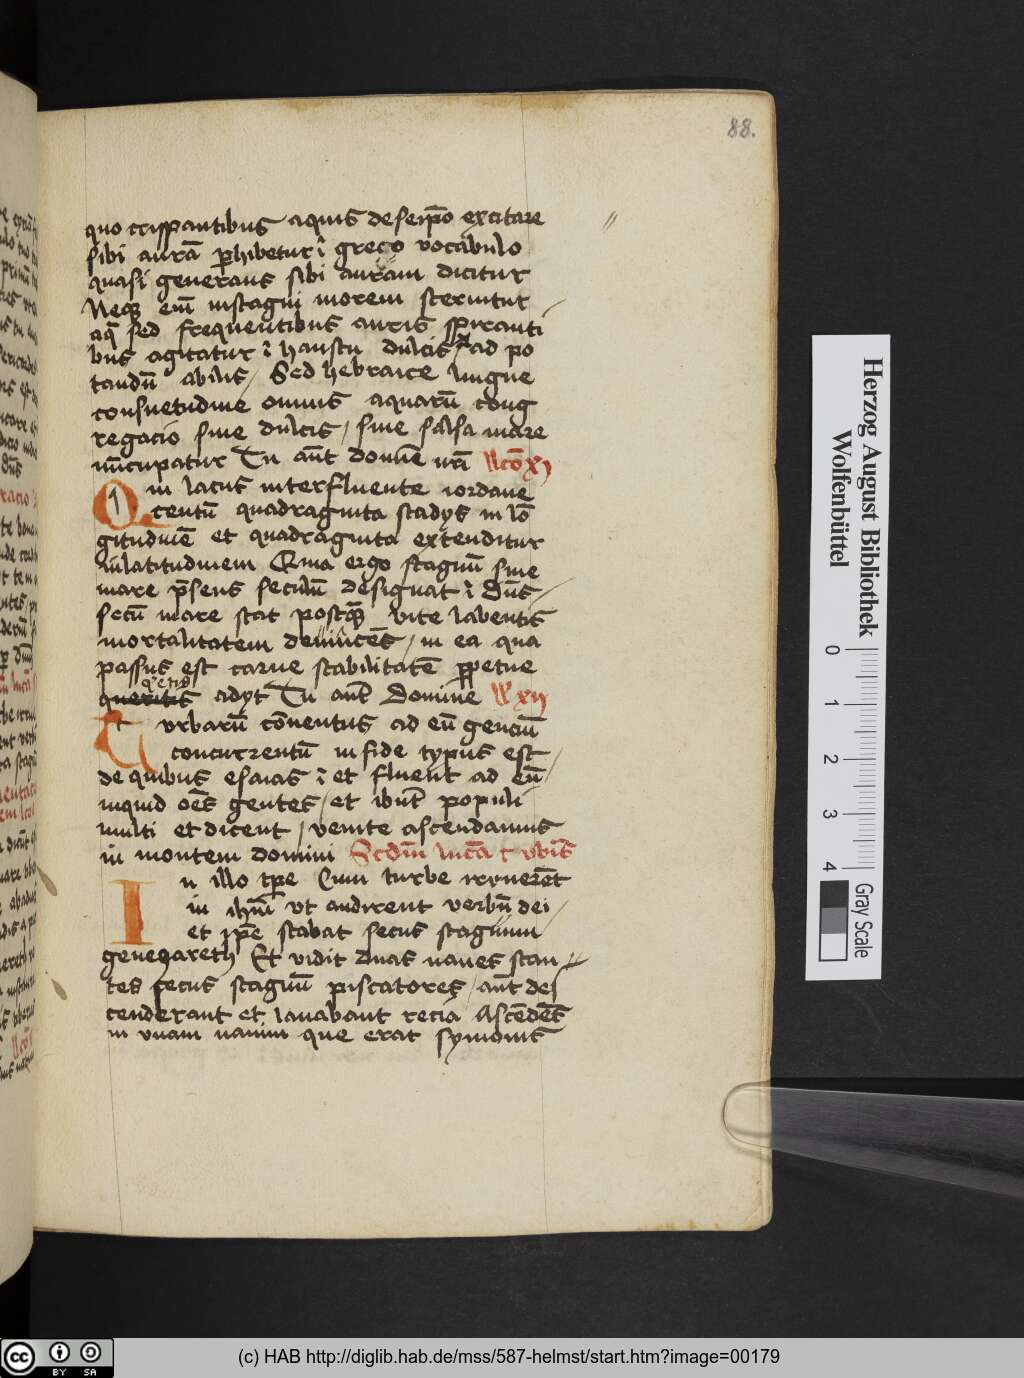 88.
quo crispantibus aquis de seip̄o excitare
sibi aurā ꝑhibetur ī greco vocabulo
quasi generans sibi auram dicitur
Neqꝫ enī in stagni morem sternitur /
aq̄ sed frequentibus auris spiranti
bus agitatur ī haustu dulcis ⁊ ad po
tandū abilis / Sed hebraice lingue
consuetudine omnis aquarū cong
regacio siue dulcis / siue salsa mare
nūcupatur Tu aūt domīe nr̄i Lc̄o xj
Q in lacus interfluente iordane
centū quadraginta stadijs in lō
gitudinē et quadraginta extenditur
in latitudinem Quia ergo stagnū siue
mare p̄sens seculū designat ī dn̄s /
secū mare stat postqꝫ vite labentis
mortalitatem deuincēs / in ea qua
passus est carne stabilitatē ꝑpetue
quietis
queritis adijt Tu aūt Domine L xij
Turbarū cōnentus ad eū genciū
concurrentū in fide typus est /
de quibus esaias ī et fluent ad eū /
inquid oēs gentes / et ibūt populi
multi et dicent / venite ascendamus
in montem domini Scdm̄ lucā t vbis
In illo tp̄e Cum turbe irruerēt
in ih̄m vt audirent verbū dei /
et ip̄e stabat secus stagnum
genesareth Et vidit duas naues stan
tes secus stagnū piscatores / aūt des
cenderant et lauabant recia Ascēdēs
in vnam nauim que erat symonis
Herzog August Bibliothek
Wolfenbüttel
0 1 2 3 4
Gray Scale
cc BY SA
(c) HAB http://diglib.hab.de/mss/587-helmst/start.htm?image=00179